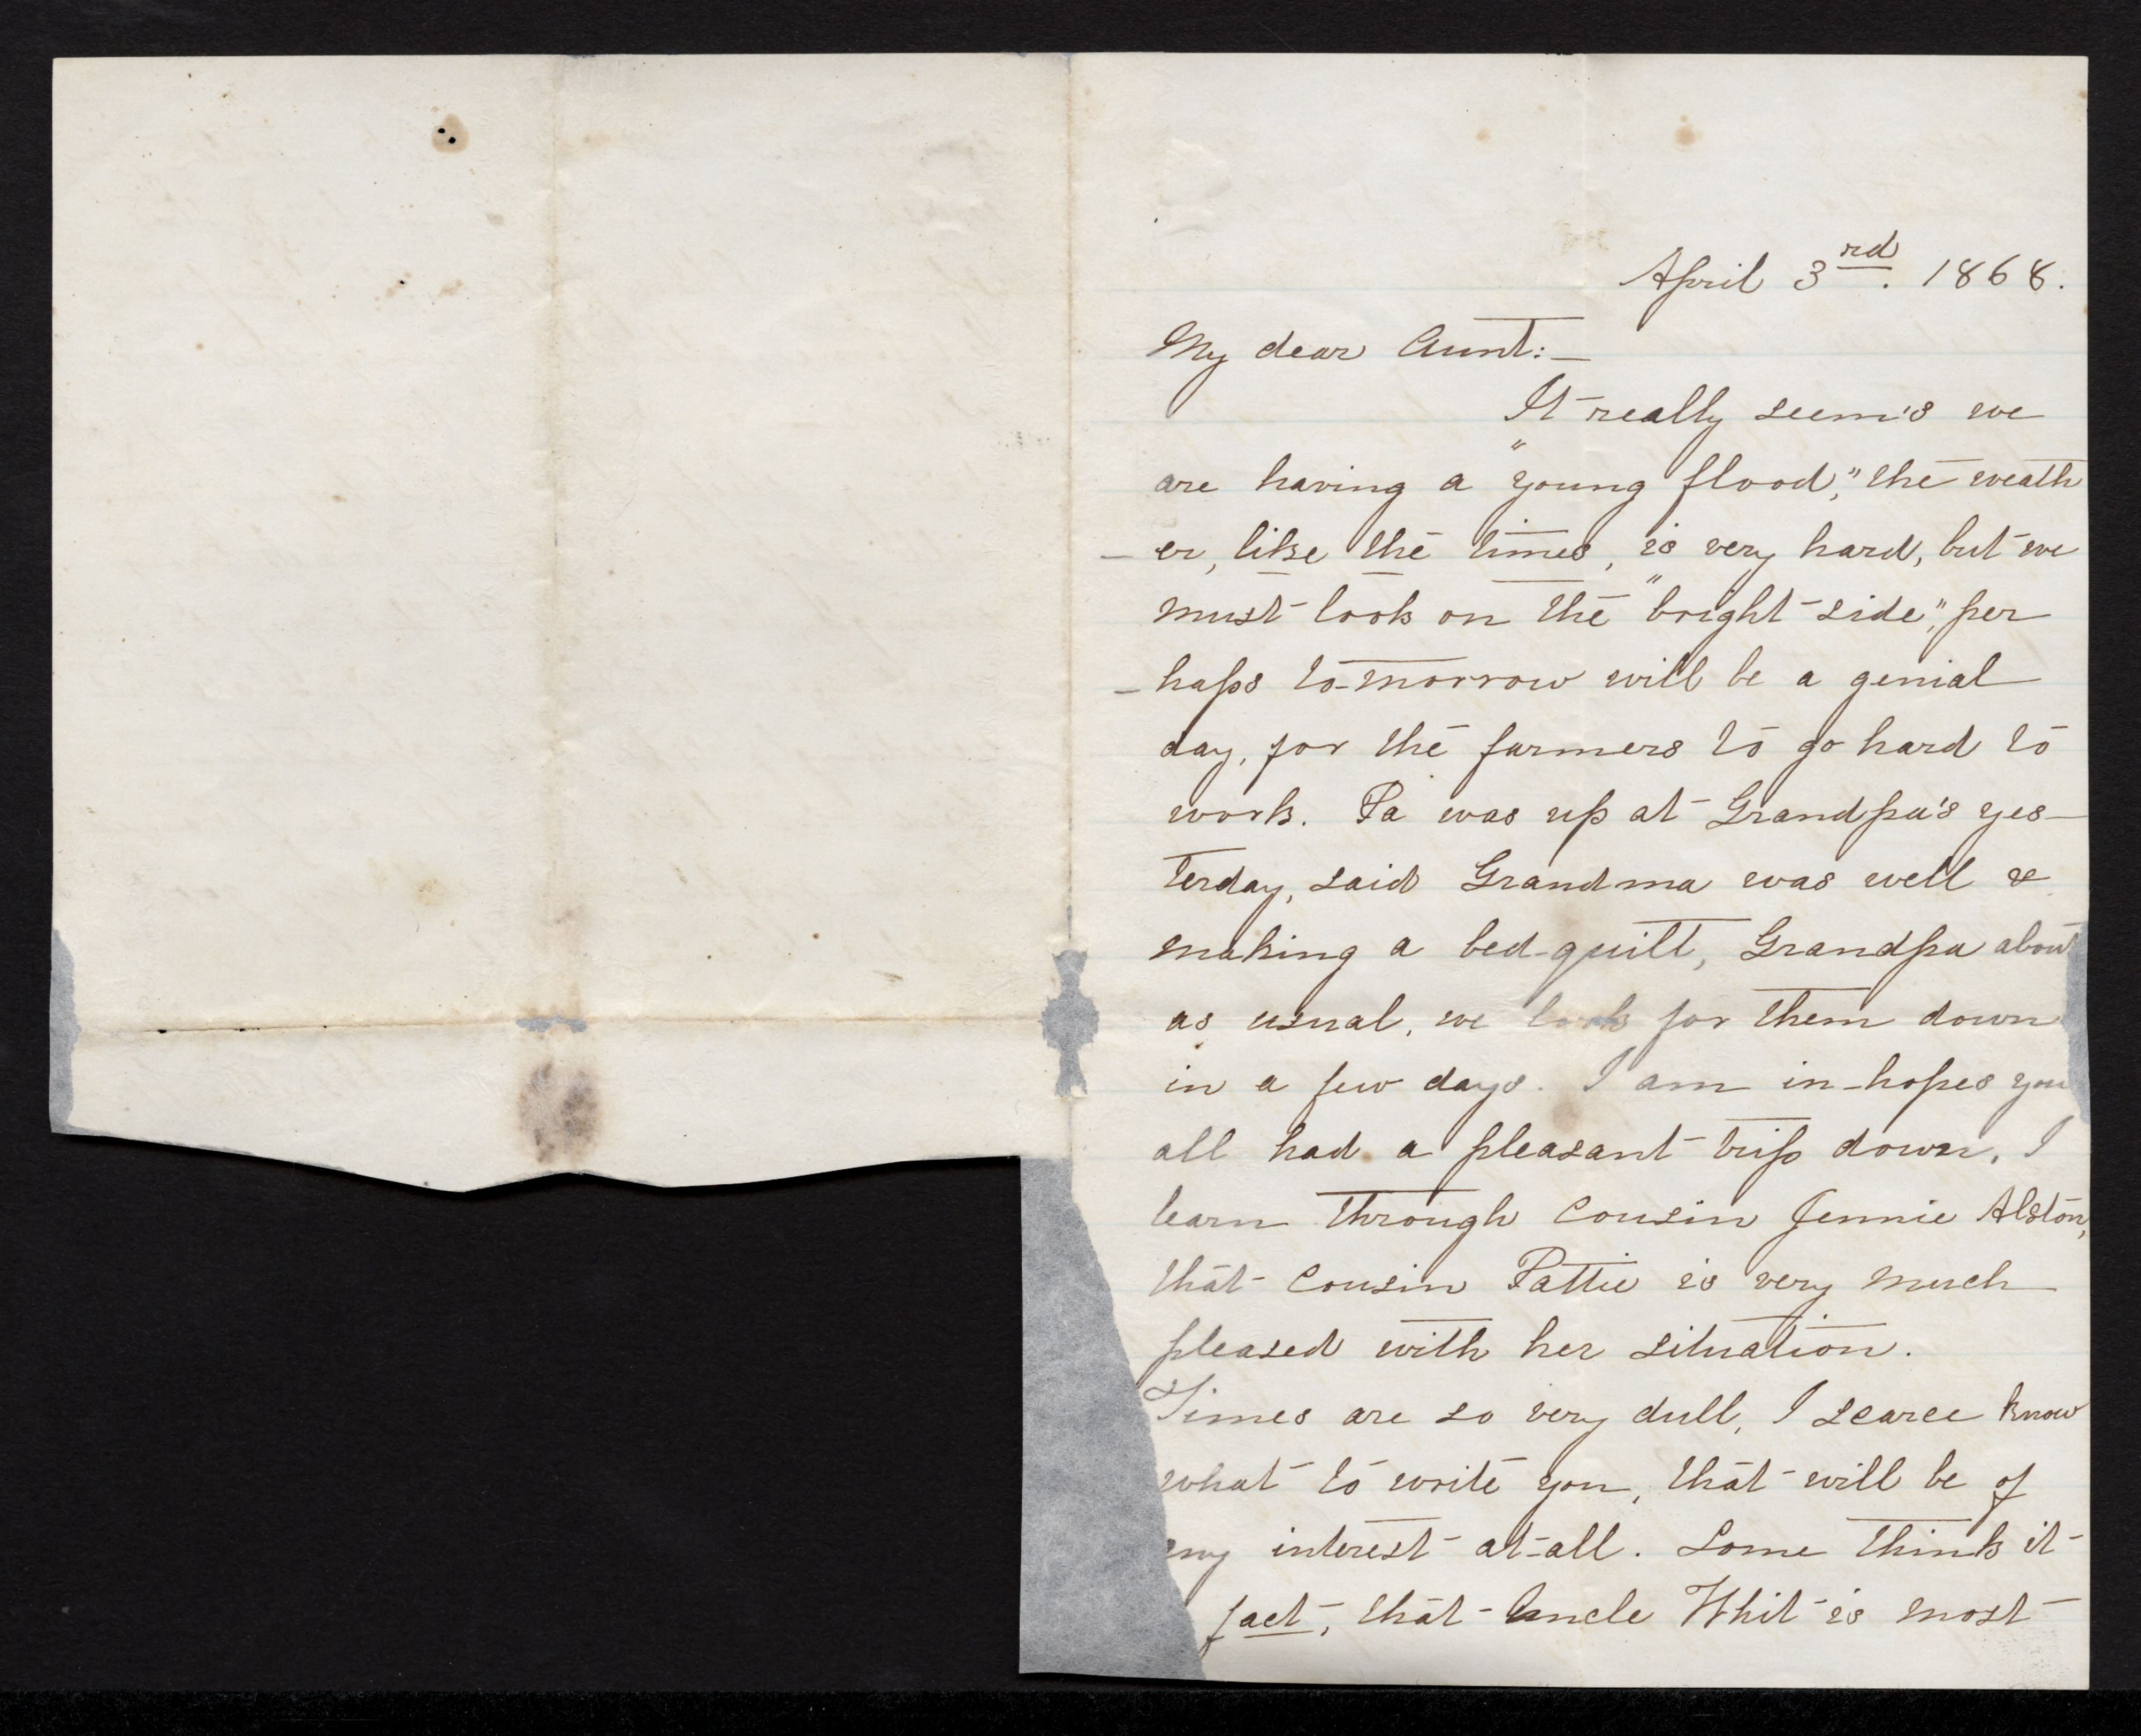 April 3rd. 1868.
My dear Aunt:—
It really seem's we
are having a "young flood," the weath
- er, like the times, is very hard, but we
must look on the "bright side," per
- haps to-morrow will be a genial
day, for the farmers to go hard to
work. Pa was up at Grandpa's yes-
terday, said Grandma was well &
making a bed-quilt, Grandpa about
as usual, we look for them down
in a few days. I am in-hopes you
all had a pleasant trip down. I
learn through Cousin Jennie Alston,
that Cousin Pattie is very much
pleased with her situation.
Times are so very dull, I scarce know
what to write you, that will be of
any interest at-all. Some think it
fact, that Uncle Whit is most